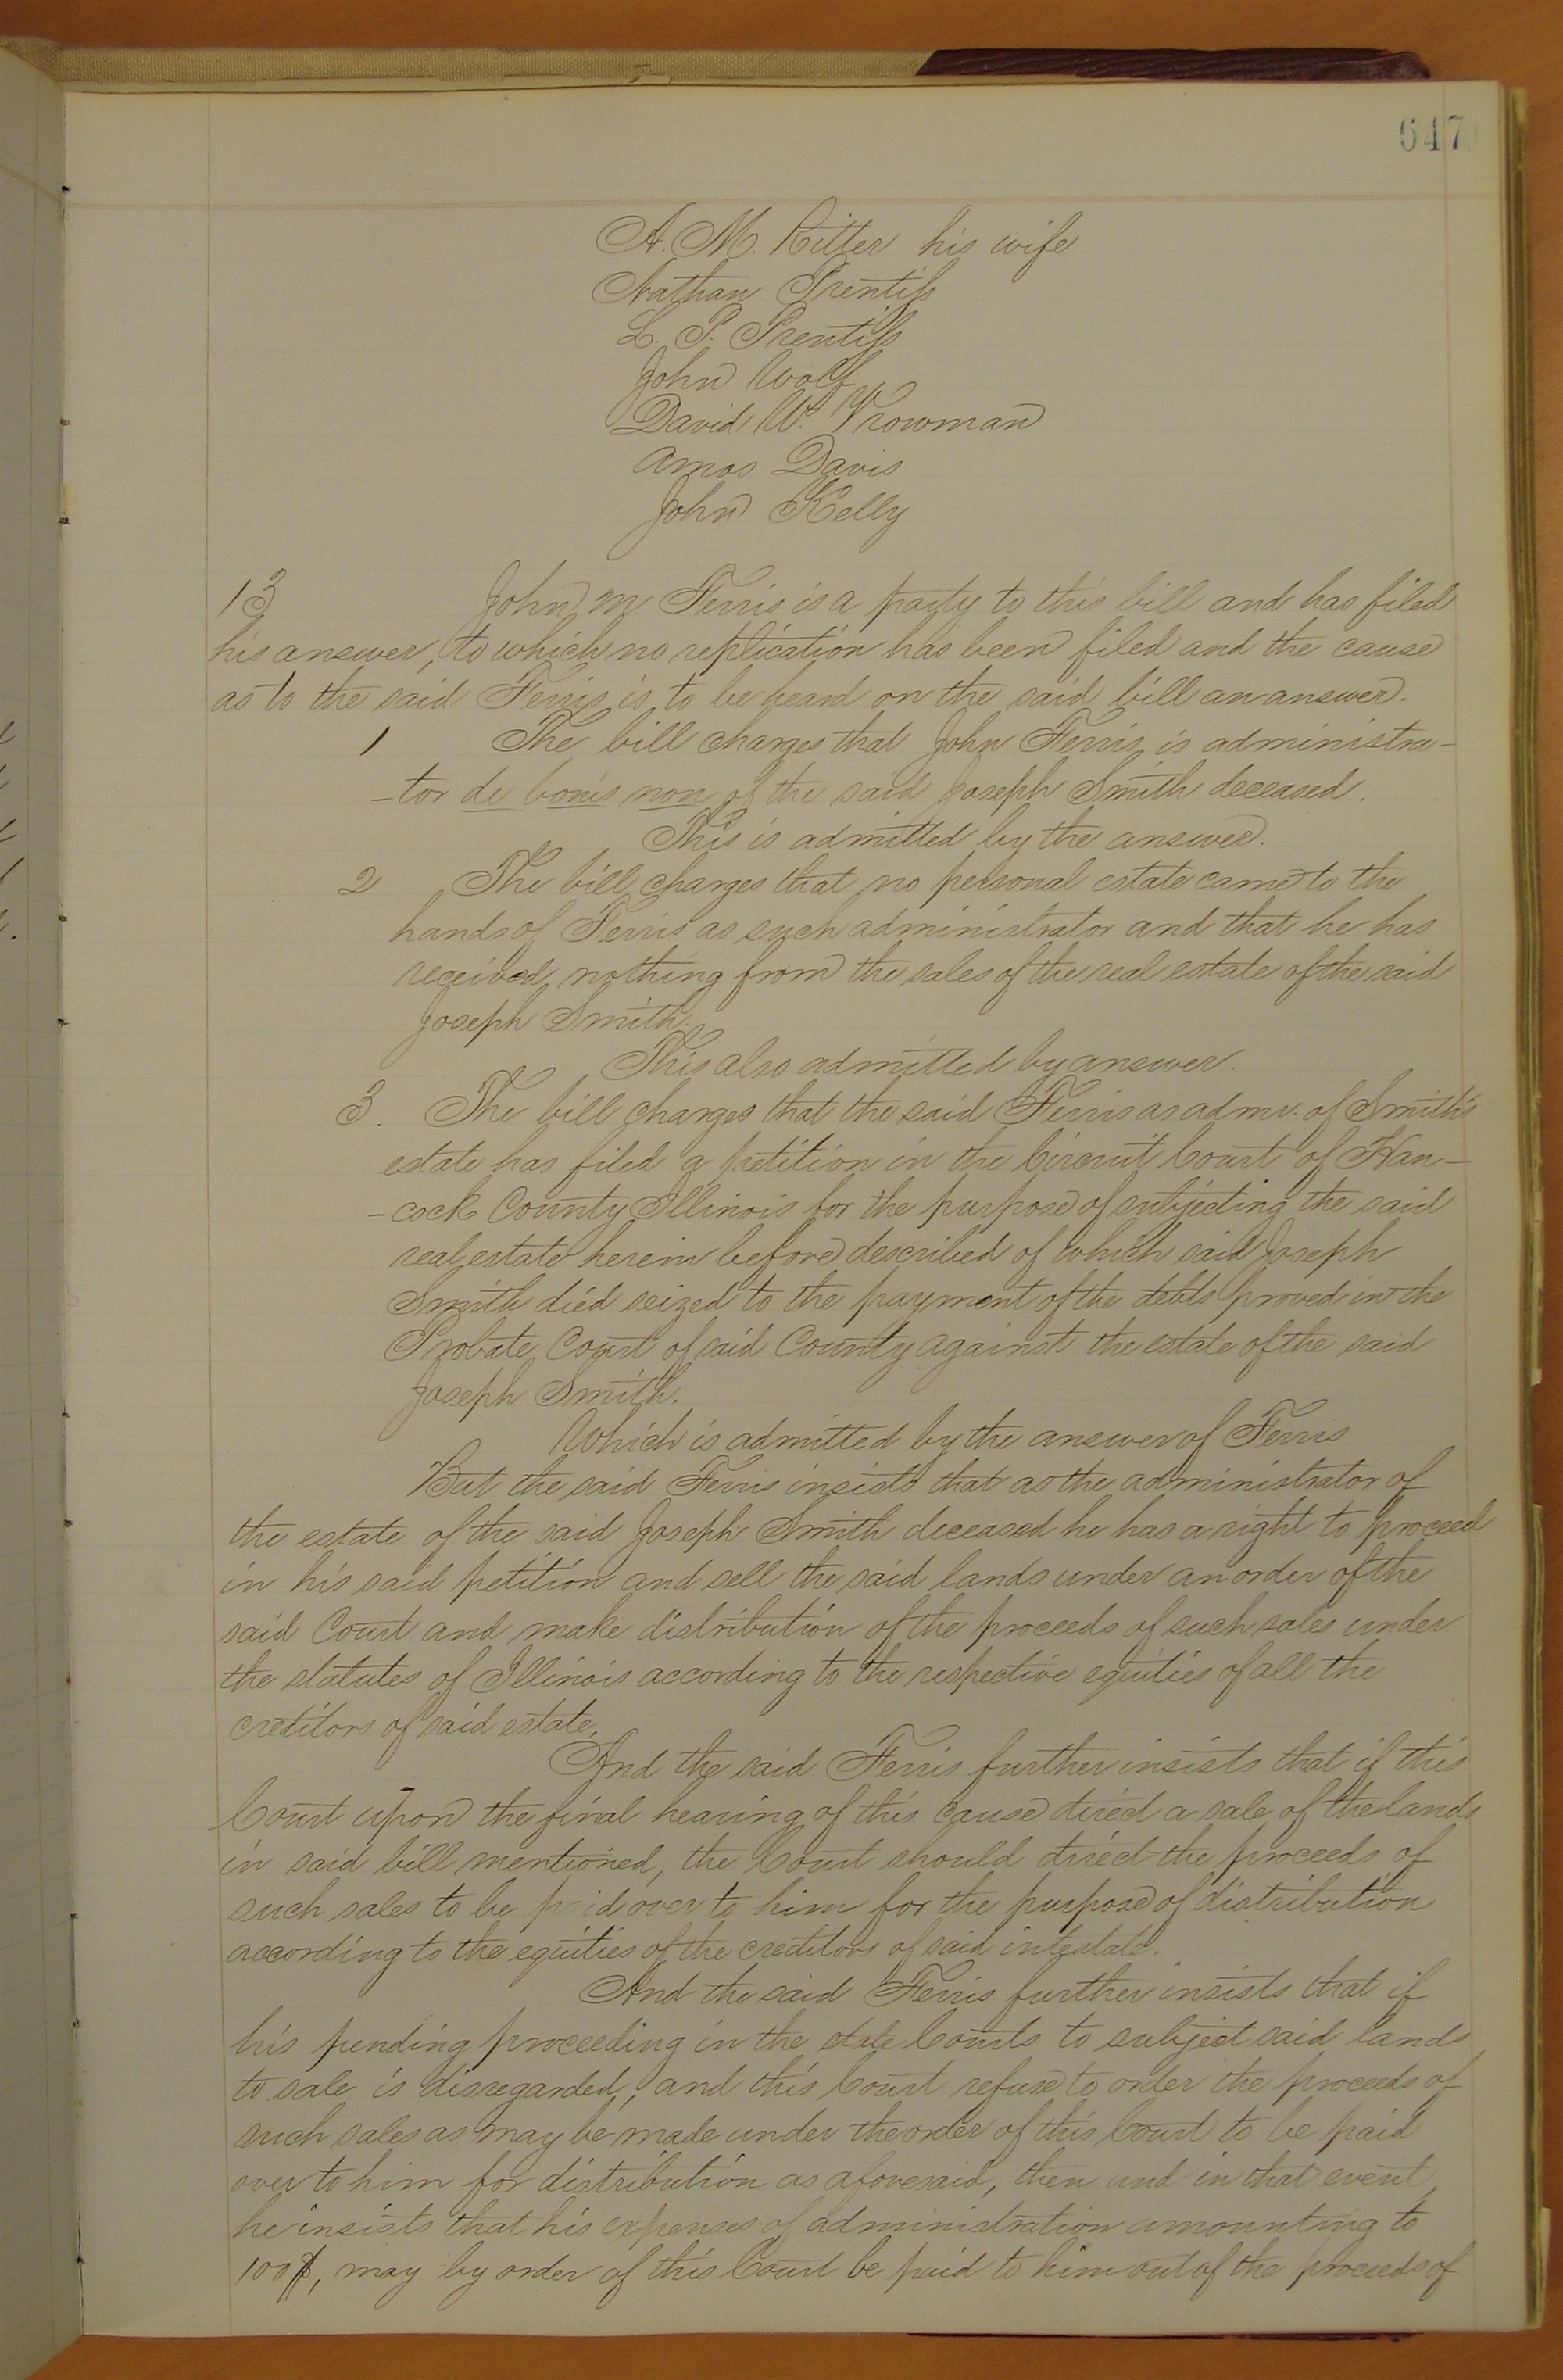 647
A. M. Ritter his wife
Nathan Prentiss
L. P. Prentiss
John Wolf
David W. Vrowman
Amos Davis
John Kelly
13 John M. Ferris is a party to this bill and has filed
his answer, to which no replication has been filed and the cause
as to the said Ferris is to be heard on the said bill an answer.
1 The bill charges that John Ferris is administra-
-tor de bonis non of the said Joseph Smith deceased.
This is admitted by the answer.
2 The bill charges that no personal estate came to the
hands of Ferris as such administrator and that he has
received nothing from the sales of the real estate of the said
Joseph Smith.
This also admitted by answer.
3. The bill charges that the said Ferris as admr. of Smith's
estate has filed a petition in the Circuit Court of Han-
-cock County Illinois for the purpose of subjecting the said
real estate herein before described of which said Joseph
Smith died seized to the payment of the debts proved in the
Probate Court of said County against the estate of the said
Joseph Smith.
Which is admitted by the answer of Ferris
But the said Ferris insists that as the administrator of
the estate of the said Joseph Smith deceased he has a right to proceed
in his said petition and sell the said lands under an order of the
said Court and make distribution of the proceeds of such sales under
the statutes of Illinois according to the respective equities of all the
creditors of said estate.
And the said Ferris further insists that if this
Court upon the final hearing of this cause direct a sale of the lands
in said bill mentioned, the Court should direct the proceeds of
such sales to be paid over to him for the purpose of distribution
according to the equities of the creditors of said intestate.
And the said Ferris further insists that if
his pending proceeding in the state Courts to subject said lands
to sale is disregarded, and this Court refuse to order the proceeds of
such sales as may be made under the order of this Court to be paid
over to him for distribution as aforesaid, then and in that event
he insists that his expenses of administration amounting to
100$, may by order of this Court be paid to him out of the proceeds of